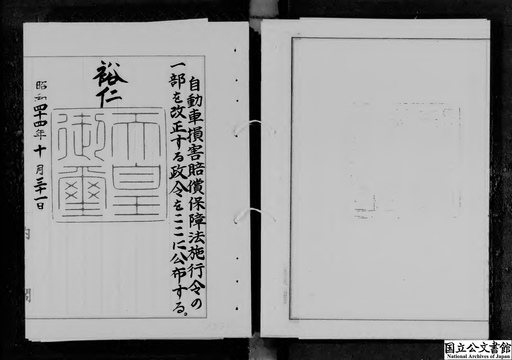 自動車損害賠償保障法施行令の
一部を改正する政令をここに公布する。
裕仁
天皇
御璽
昭和四十四年十月三十一日
内
閣
国立公文書館
National Archives of Japan